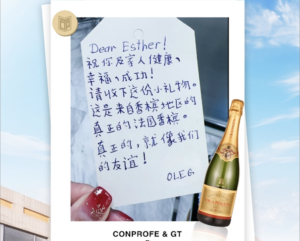 Dear Esther!
祝你及家人健康、
幸福、成功!
请收下这份小礼物。
这是来自香槟地区的
真正的法国香槟。
真正的,就像我们
的友谊!
OLEG.
CONPROFE & GT